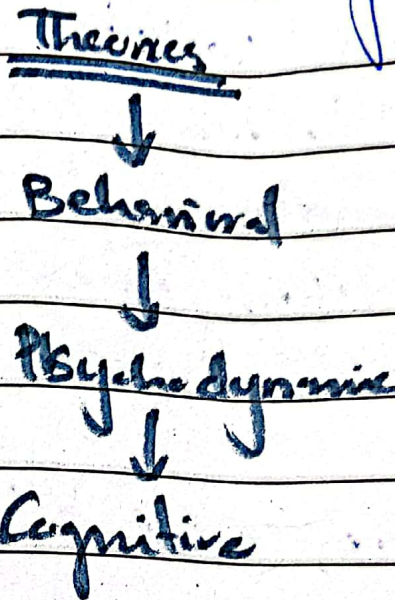 Theories
↓
Behavioral
↓
Psychodynamic
↓
Cognitive